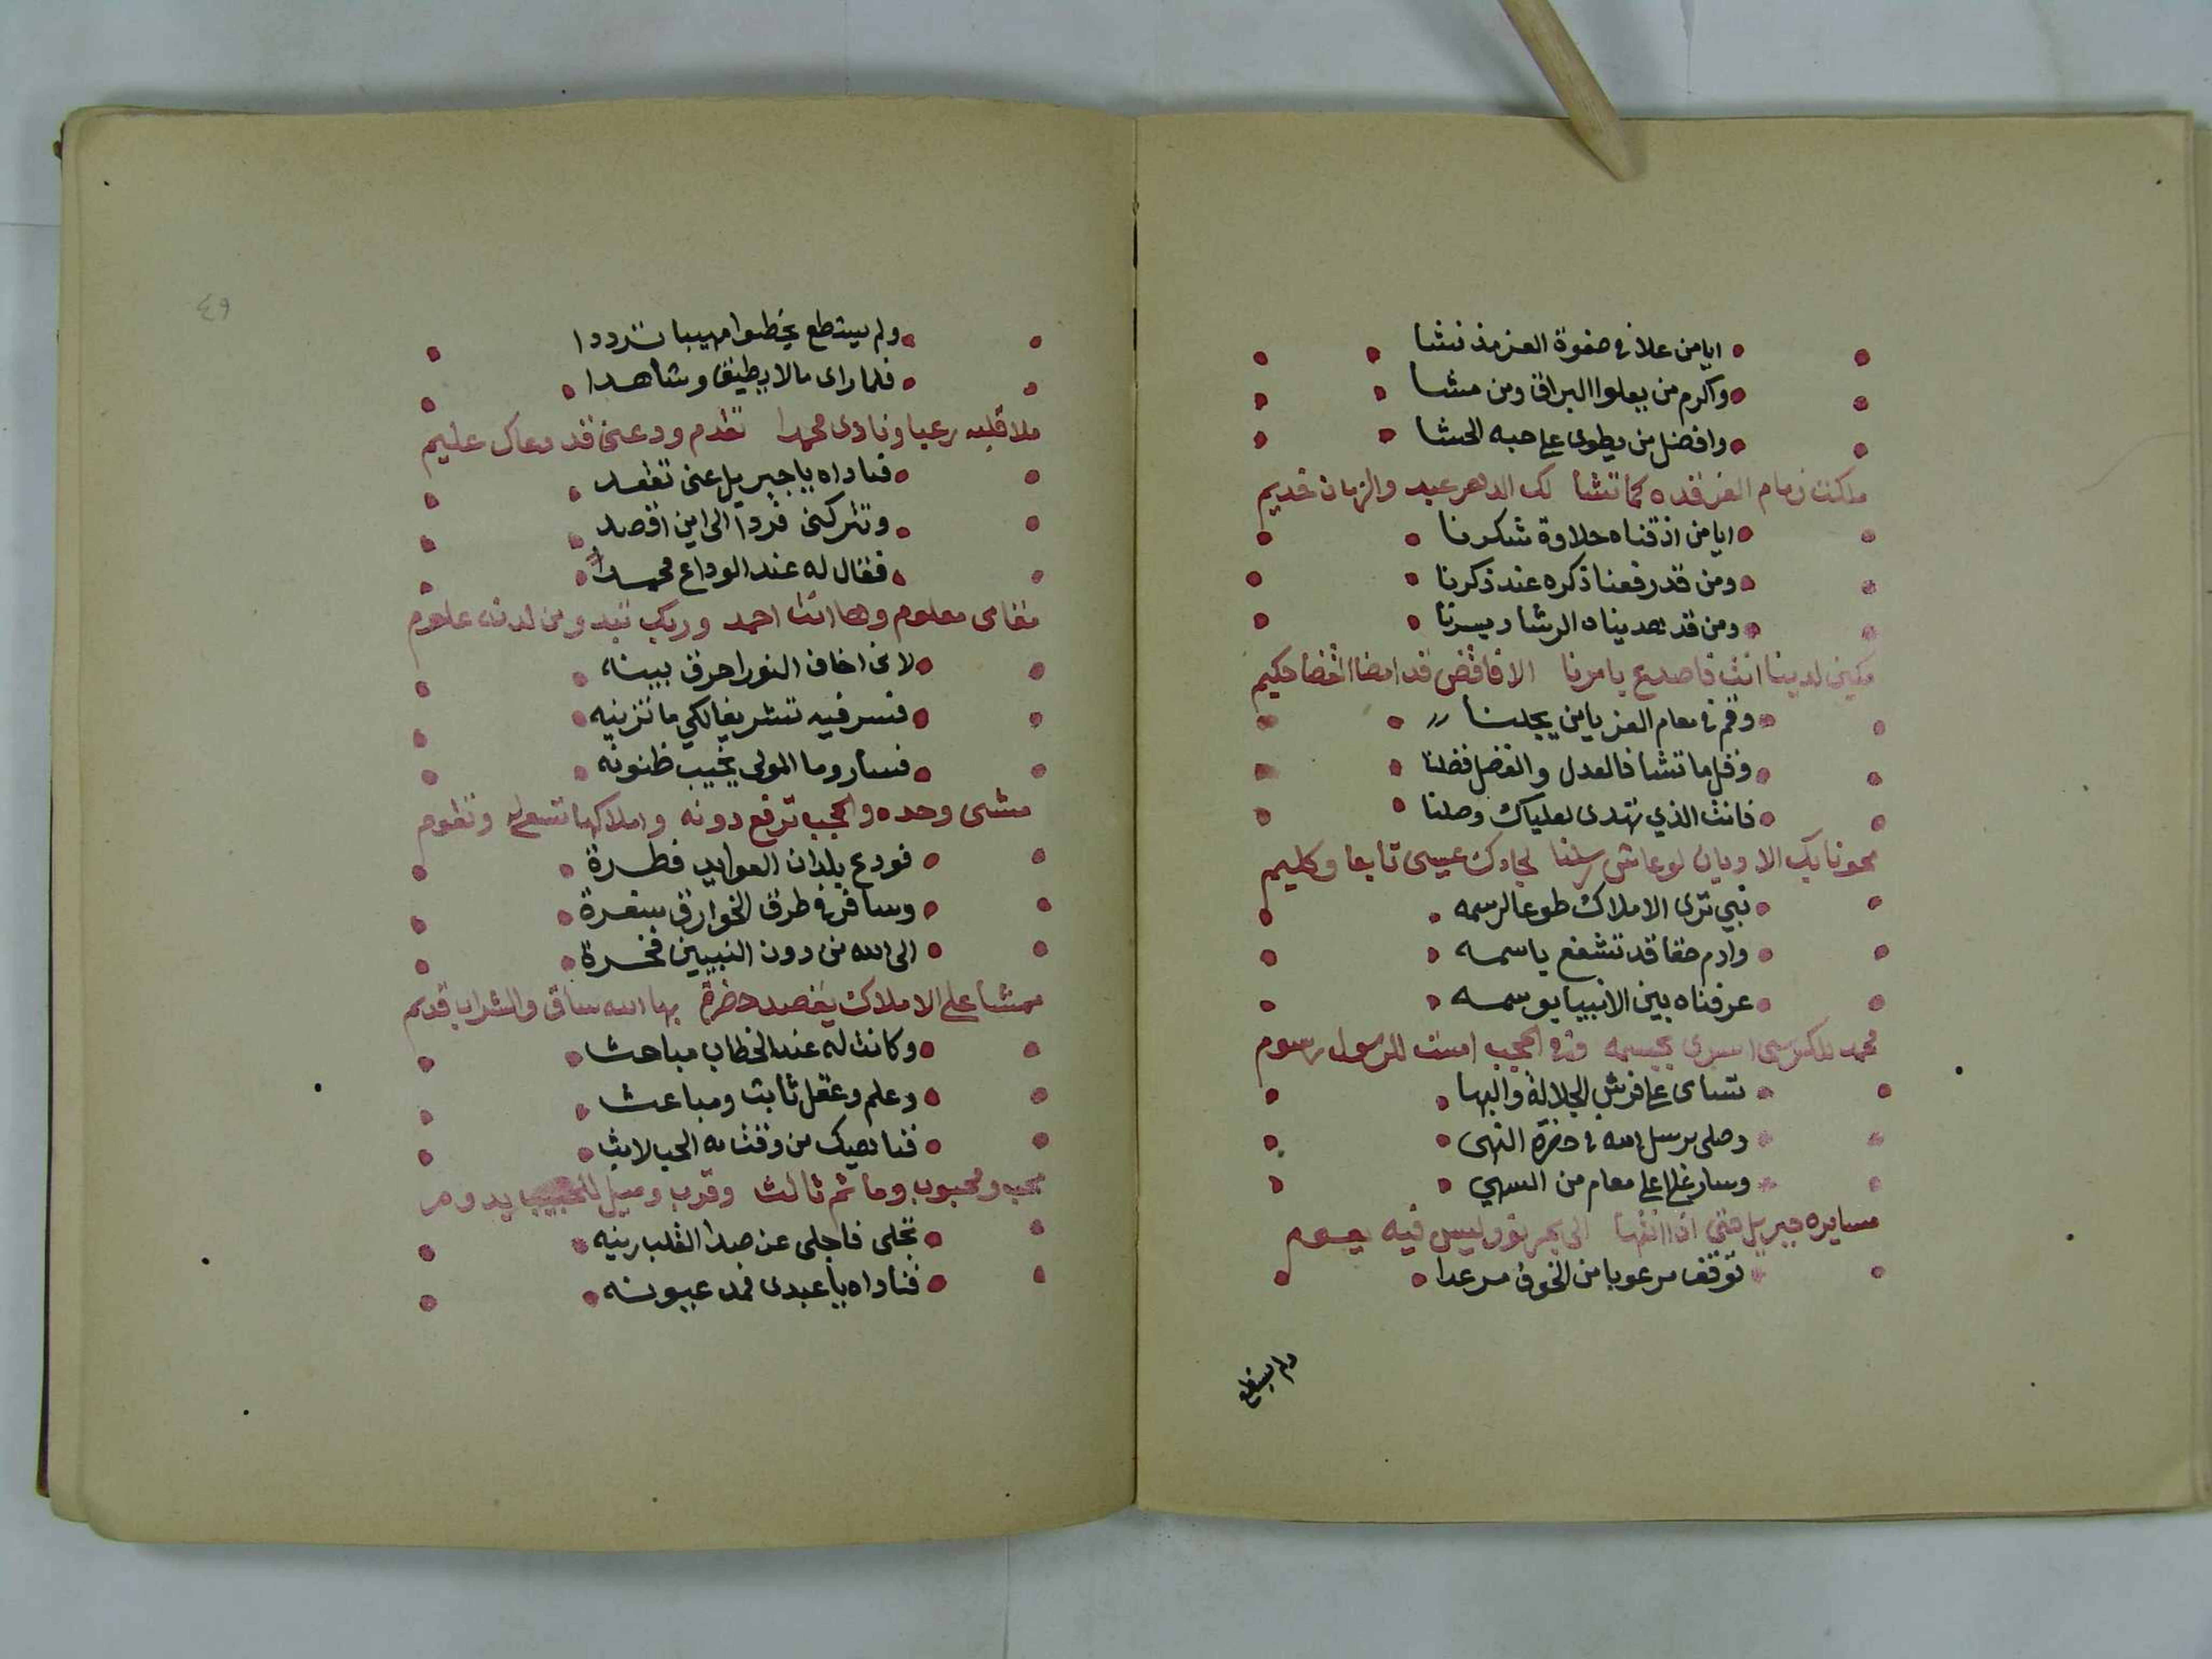 ايامن علا في صفوة العز مذ نشا
واكرم من يعلوا البراق ومن مشا
وافضل من يطوى على حبه الحشا
ملكت زمام العز قده كما تشا لك الدهر عبد والزمان خديم
ايامن اذقناه حلاوة شكرنا
ومن قد رفعنا ذكره عند ذكرنا
ومن قد هديناه الرشاد بسرنا
مكين لدينا انت فاصدع بامرنا الا فاقض قد امضا القضا حكيم
وقم في مقام العز يامن يجلنا
وقل ما تشا فالعدل والفضل فضلنا
فانت الذي تهدى لعلياك وصلنا
محونا بك الاديان لو عاش رسلنا لجاءك عيسى تابعا وكليم
نبي ترى الاملاك طوعا لرسمه
وادم حقا قد تشفع باسمه
عرفناه بين الانبيا بوسمه
محمد للكرسى اسرى بجسمه الحجب امست للرسول رسوم
تسامى على فرش الجلالة والبها
وصلى برسل الله في حضرة النهى
وسار على اعلى مقام من السهي
مسايره جبريل حتى اذا انتها الى بحر نور ليس فيه يعوم
توقف مرعوبا من الخوف مرعدا
ولم يستطع
٤٩
ولم يستطع يخطوا مهيبا تترددا
فلما راى ما لا يطيق وشاهدا
ملا قلبه رعبا ونادى محمدا تقدم ودعنى قد دعاك عليم
فناداه يا جبريل عنى تقعد
وتتركنى فردا الى اين اقصد
فقال له عند الوداع محمدا
مقامى معلوم وها انت احمد وربك تبدو من لدنه علوم
لانى اخاف النور احرق بينه
فسر فيه تشريفا لكي ما تزينه
فسار وما المولى يخيب ظنونه
مشى وحده والحجب ترفع دونه واملاكها تسعى له وتقوم
فودع بلدان العوايد فطرة
وسافر في طرق الخوارق سفرة
الى الله من دون النبيين فخرة
ممشا على الاملاك يقصد حضرة بها الله ساق والشراب قديم
وكانت له عند الخطاب مباحث
وعلم وعقل ثابت ومباعث
فناهيك من وقت به الحب لابث
محب ومحبوب وما ثم ثالث وقرب وميل للحبيب يدوم
تجلى فاجلى عن صدا القلب رينه
فناداه يا عبدى فمد عيونه